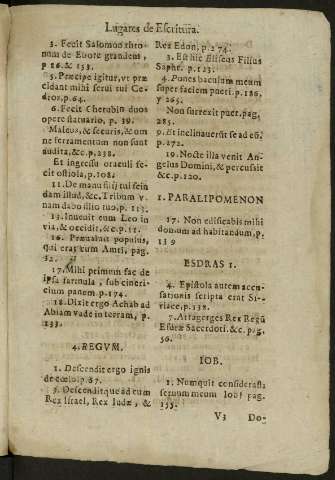 Lugares de Escritura.
3. Fecit Salomon thro
num de Ebore grandem,
p 86. & 153.
5. Præcipe igitur, vt præ
cidant mihi serui tui Ce-
dros, p. 64.
6. Fecit Cherubin duos
opere statuario, p. 39.
Maleus, & securis, & om
ne ferramentum non sunt
audita, &c. p. 238.
Et ingressu oraculi fe-
cit ostiola, p. 108.
11. De manu filij tui scin
dam illud, &c. Tribum v
nam dabo illio tuo, p. 113.
13. Inuenit eum Leo in
via, & occidit, &c. p. 11.
16. Præualuit populus,
qui erat cum Amri, pag.
52.
17. Mihi primum fac de
ipsa farinula, sub cineri-
cium panem p. 174.
18. Dixit ergo Achab ad
Abiam vade in terram, p.
133.
4. REGVM.
1. Descendit ergo ignis
de cœlo, p. 87.
3. Descenditque ad eum
Rex Israel, Rex Iudæ, &
Rex Edon, p. 274.
3. Est hic Eliseus Filius
Saphr. p. 123.
4. Pones baculum meum
super faciem pueri, p. 186,
y 265.
Non surrexit puer, pag.
285.
9. Et inclinauersit se ad eũ,
p. 272.
19. Nocte illa venit An
gelus Domini, & percussit
&c. p. 120.
1. PARALIPOMENON
17. Non edificabis mihi
domum ad habitandum, p.
139
ESDRAS 1.
4. Epistola autem accu-
sationis scripta erat Si-
riace, p. 132.
7. Artagerges Rex Regũ
Esdræ Sacerdoti. &c. pag,
56.
IOB.
1. Numquit considerasti
seruum meum Iob? pag.
155.
V3 Do-